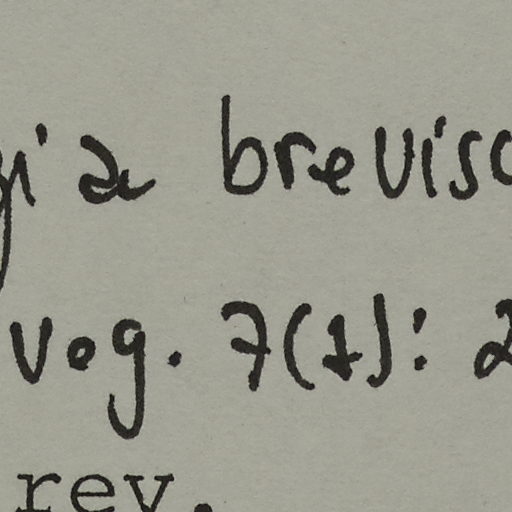 gia brevisc
vog. 7(1): 2
rev.